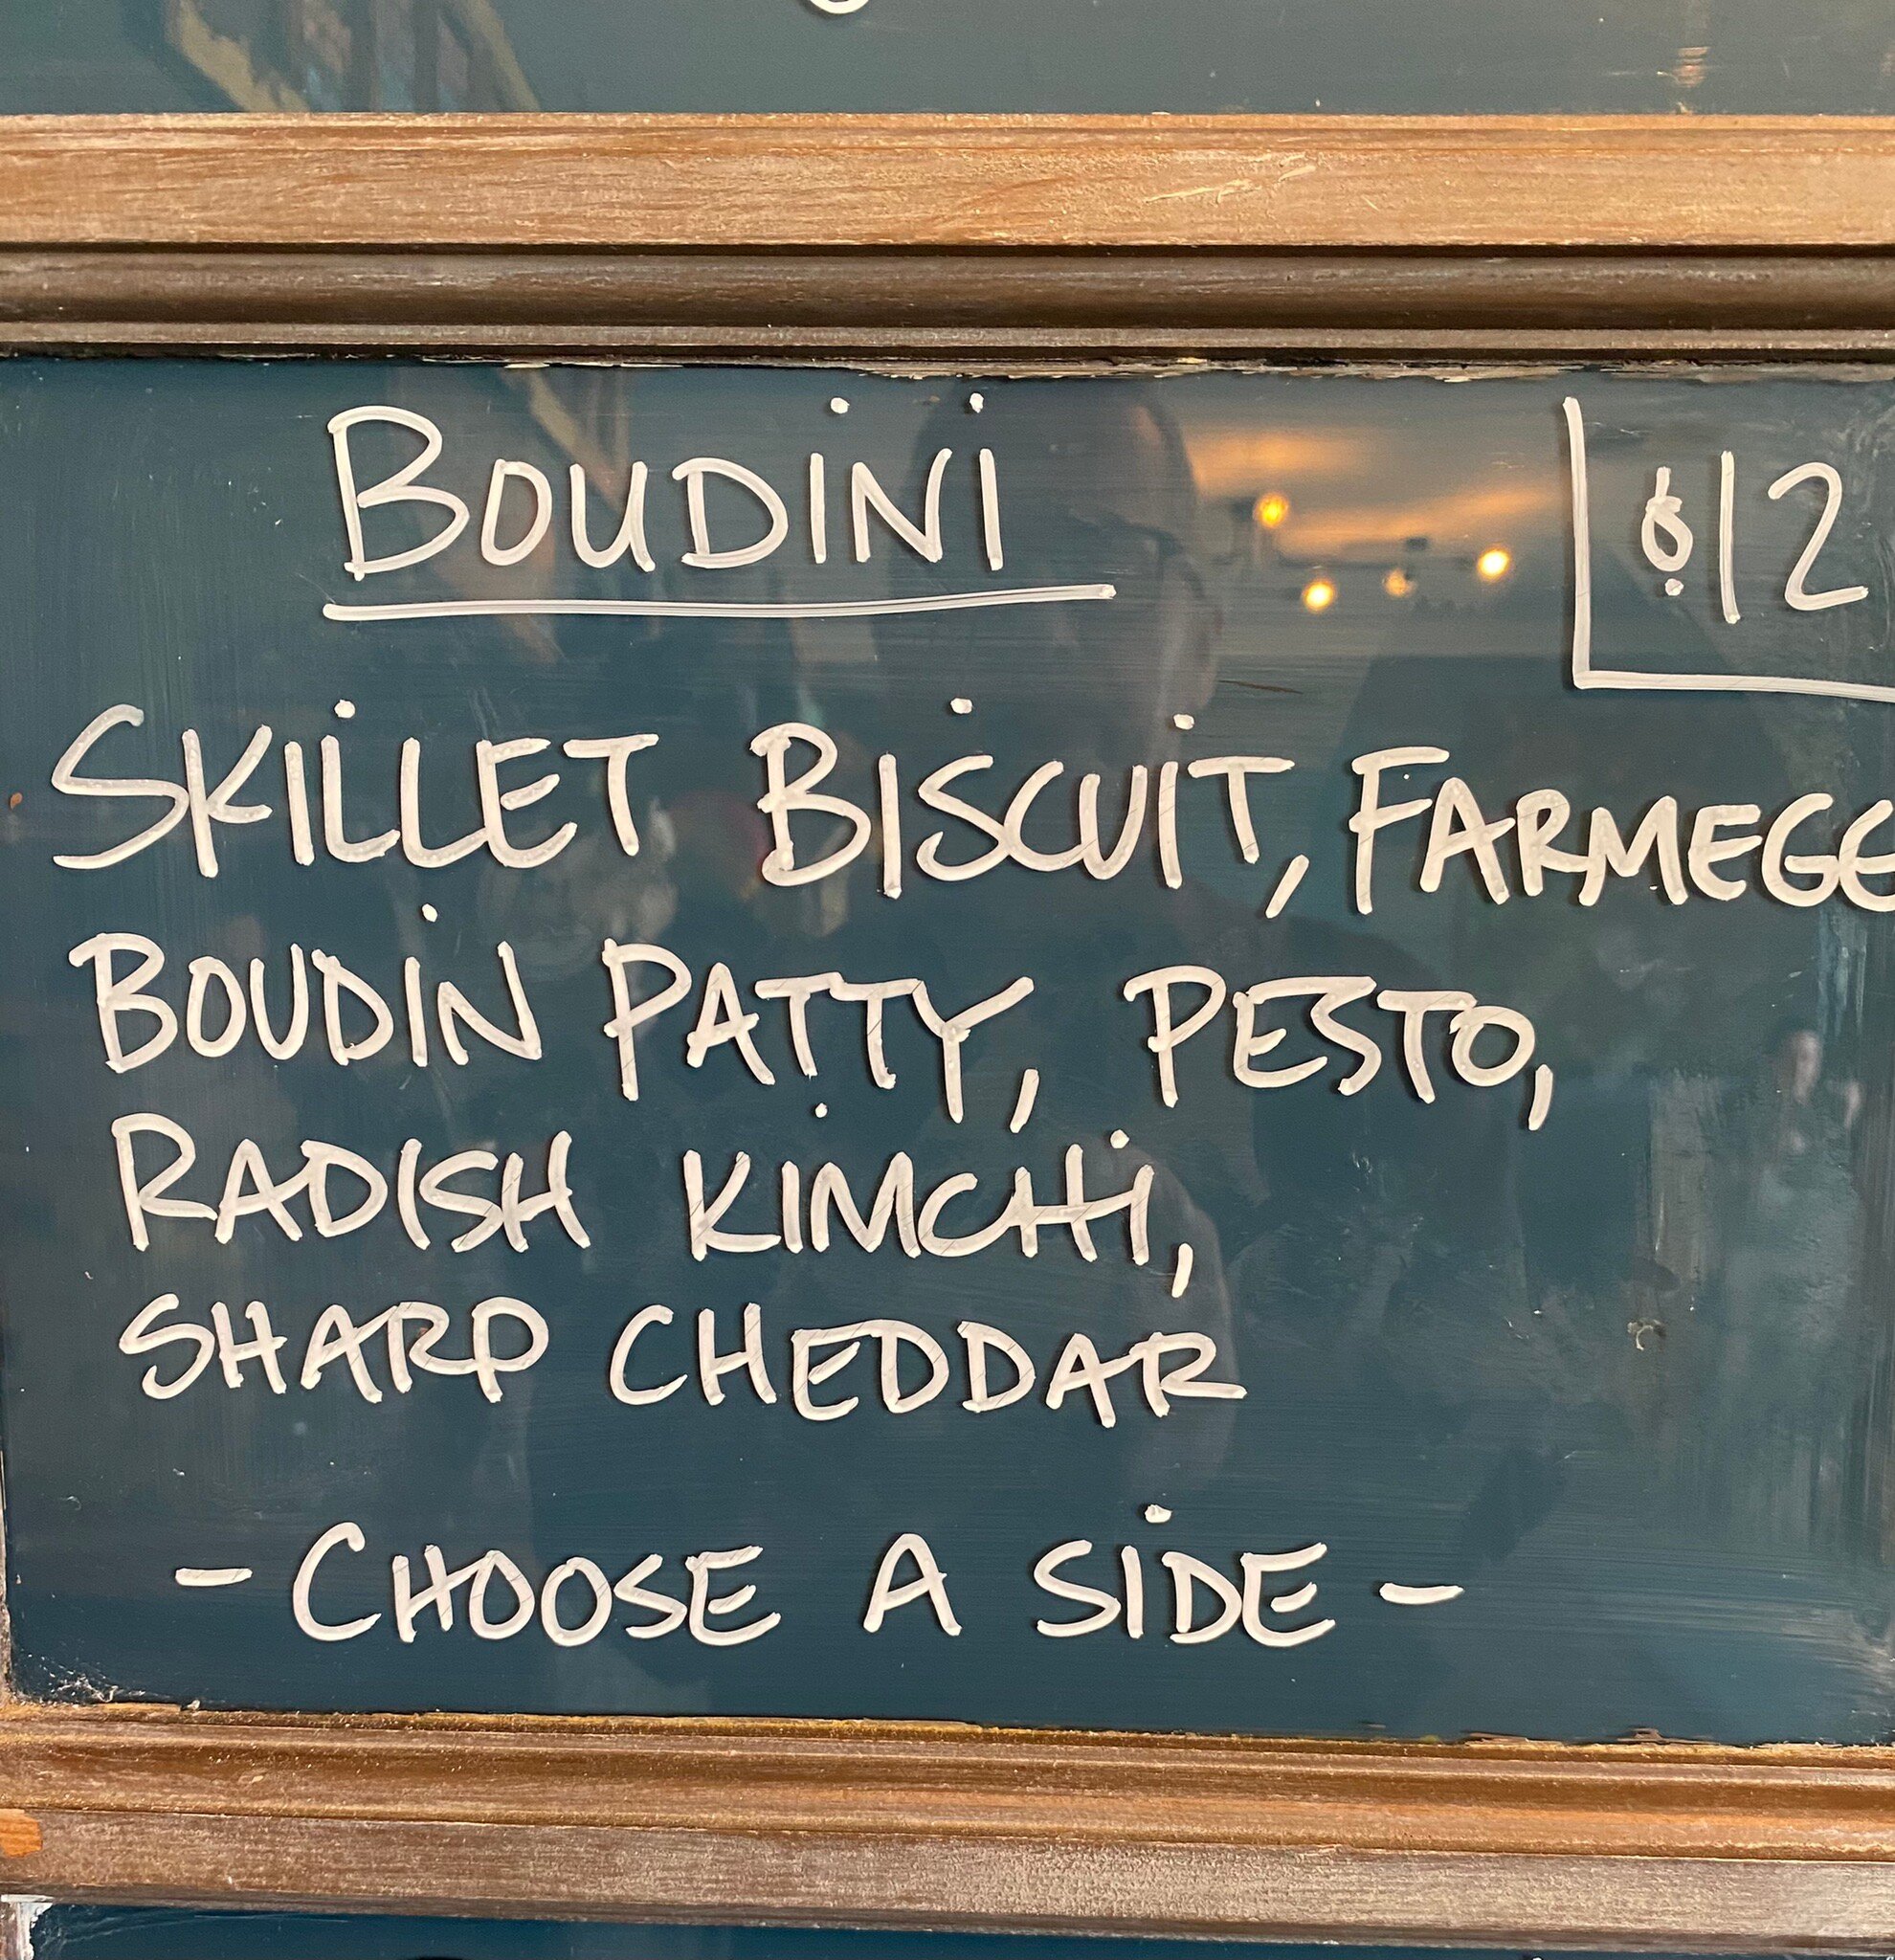 BOUDINI
$12
SKILLET BISCUIT, FARMEGG
BOUDIN PATTY, PESTO,
RADISH KIMCHI,
SHARP CHEDDAR
- CHOOSE A SIDE -